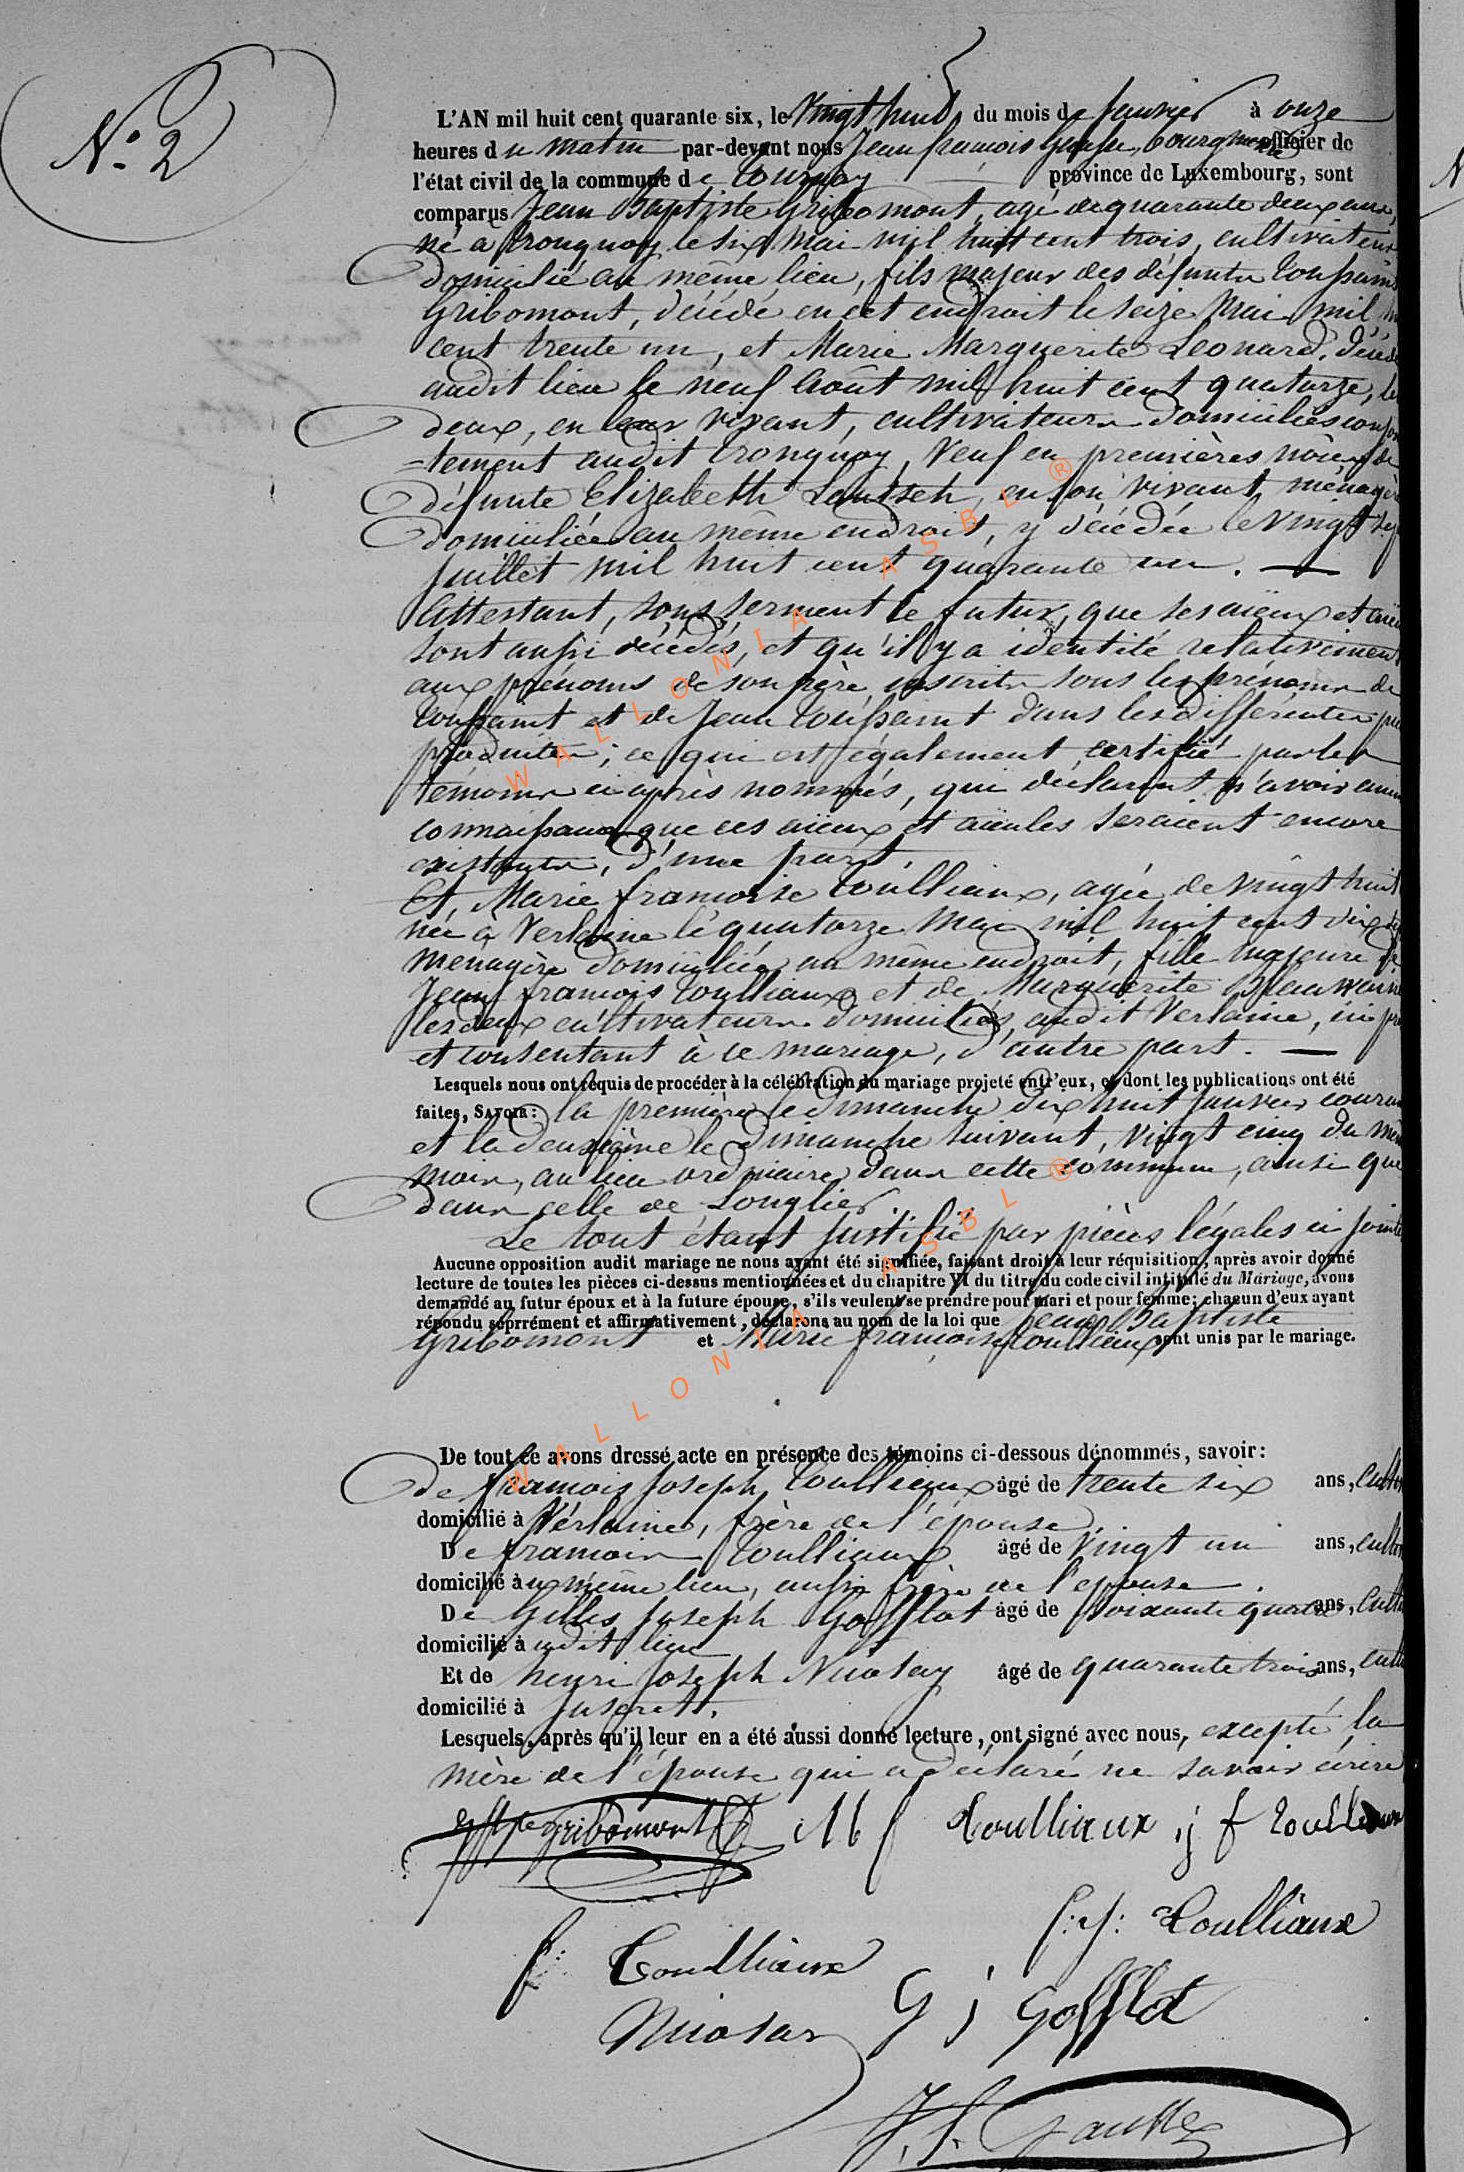 N.° 2
L'AN mil huit cent quarante six, le vingt huit du mois de Janvier à onze
heures du matin par-devant nous Jean françois bourgmestre officier de
l'état civil de la commune de Tournay province de Luxembourg, sont
comparus Jean Baptiste Gribomont, agé de quarante deux ans,
né à Tronquoy le six Mai mil huit cent trois, cultivateur
domicilié au même lieu, fils majeur des défunts Toussaint
Gribomont, décédé en cet endroit le seize Mai mil
cent trente un, et Marie Marguerite Leonard, décédé
audit lieu le neuf Août mil huit cent quatorze, les
deux, en leur vivant, cultivateurs domiciliés conjoin
=tement audit Tronquoy, Veuf en premières nôces de
défunte Elizabeth en son vivant ménagère
domiciliée au même endroit, y décédée le vingt
Juillet mil huit cent quarante un. —
Attestant, sous serment le futur, que ses aïeux et aïeu
sont aussi décédés, et qu'il y a identité relativement
aux prénoms de son père, inscrits sous les prénoms de
Toussaint et de Jean Toussaint dans les différentes
produites; ce qui est également certifié par les
témoins ci après nommés, qui déclarent n'avoir aucu
connaissance que ces aïeux et aïeules seraient encore
existants, d'une part.
Et, Marie françoise Toulliaux, agée de vingt huit
née à Verlaine le quatorze Mai mil huit cent dix
ménagère domiciliée au même endroit, fille majeure de
Jean françois Toulliaux et de Marguerite
les deux cultivateurs domiciliés audit Verlaine, ici pré
et consentant à ce mariage, d'autre part. —
Lesquels nous ont requis de procéder à la célébration du mariage projeté entr'eux, et dont les publications ont été
faites, SAVOIR: la première le dimanche dix huit Janvier couran
et la deuxième le Dimanche suivant, vingt cinq du même
mois, au lieu ordinaire dans cette commune, ainsi que
dans celle de Longlier.
Le tout étant justifié par pièces légales ci jointes
Aucune opposition audit mariage ne nous ayant été signifiée, faisant droit à leur réquisition, après avoir donné
lecture de toutes les pièces ci-dessus mentionnées et du chapitre VI du titre du code civil intitulé du Mariage, avons
demandé au futur époux et à la future épouse, s'ils veulent se prendre pour mari et pour femme; chacun d'eux ayant
répondu séprrément et affirmativement, déclarons au nom de la loi que Jean Baptiste
Gribomont et Marie françoise Toulliaux sont unis par le mariage.
De tout ce avons dressé acte en présence des témoins ci-dessous dénommés, savoir:
De françois Joseph Toulliaux âgé de trente six ans, cultiv
domicilié à Verlaine, frère de l'épouse
De françois Toulliaux âgé de vingt un ans, cultiv
domicilié au même lieu, aussi frère de l'épouse.
De Gilles Joseph Gofflot âgé de soixante quatre ans, cultiv
domicilié audit lieu
Et de henri Joseph Nicolay âgé de quarante trois ans, cultiv
domicilié à Juseret.
Lesquels, après qu'il leur en a été aussi donné lecture, ont signé avec nous, excepté la
mère de l'épouse qui a déclaré ne savoir écrire
Gribomont M f Toulliaux j f Toulliaux
f: j: Toulliaux
f: Toulliaux
G j Gofflot
Nicolay
J. f.
WALLONIA ASBL ®
WALLONIA ASBL ®